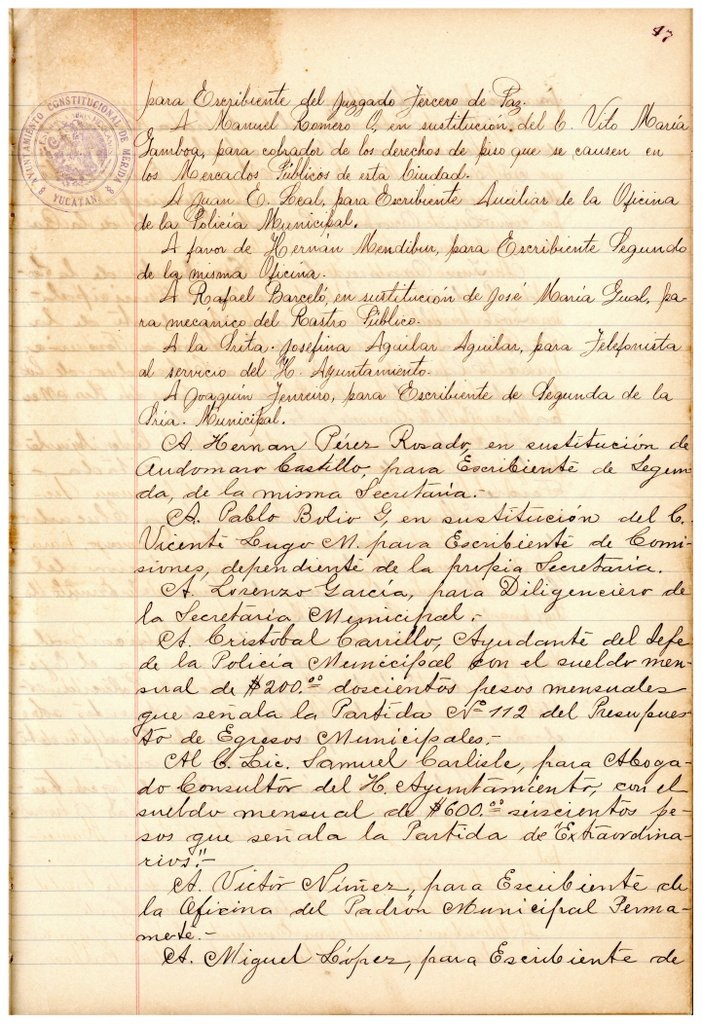 47
AYUNTAMIENTO CONSTITUCIONAL DE MERIDA
YUCATAN
para Escribiente del Juzgado Tercero de Paz.
A Manuel Romero O, en sustitución del C. Vito María
Gamboa, para cobrador de los derechos de piso que se causen en
los Mercados Públicos de esta Ciudad.
A Juan E. Leal, para Escribiente Auxiliar de la Oficina
de la Policía Municipal.
A favor de Hernán Mendibur, para Escribiente Segundo
de la misma Oficina.
A Rafael Barceló, en sustitución de José María Gual, pa-
ra mecánico del Rastro Público.
A la Srita. Josefina Aguilar Aguilar, para Telefonista
al servicio del H. Ayuntamiento.
A Joaquín Jenreiro, para Escribiente de Segunda de la
Sría. Municipal.
A. Hernan Pérez Rosado, en sustitución de
Audomaro Castillo, para Escribiente de Segun-
da, de la misma Secretaría.-
A. Pablo Bolio G, en sustitución del C.
Vicente Lugo M. para Escribiente de Comi-
siones, dependiente de la propia Secretaría.
A. Lorenzo García, para Diligenciero de
la Secretaría Municipal.-
A. Cristóbal Carrillo, Ayudante del Jefe
de la Policía Municipal con el sueldo men-
sual de $200.oo doscientos pesos mensuales
que señala la Partida No 112 del Presupues-
to de Egresos Municipales.-
Al C. Lic. Samuel Carlisle, para Aboga-
do Consultor del H. Ayuntamiento, con el
sueldo mensual de $600.oo seiscientos pe-
sos que señala la Partida de "Extraordina-
rios".-
A. Victor Núñez, para Escribiente de
la Oficina del Padrón Municipal Perma-
mete.-
A. Miguel López, para Escribiente de